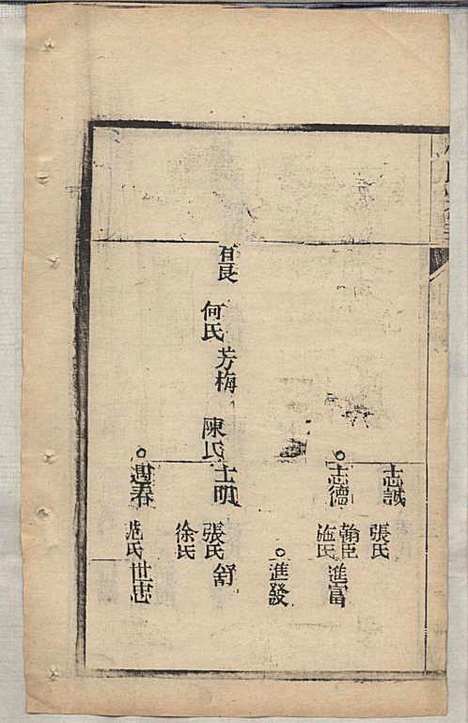 志誠
張氏
志德
翰臣
施氏
進富
進發
何氏
芳梅
陳氏
士明
張氏
舒
徐氏
遇春
范氏
世忠